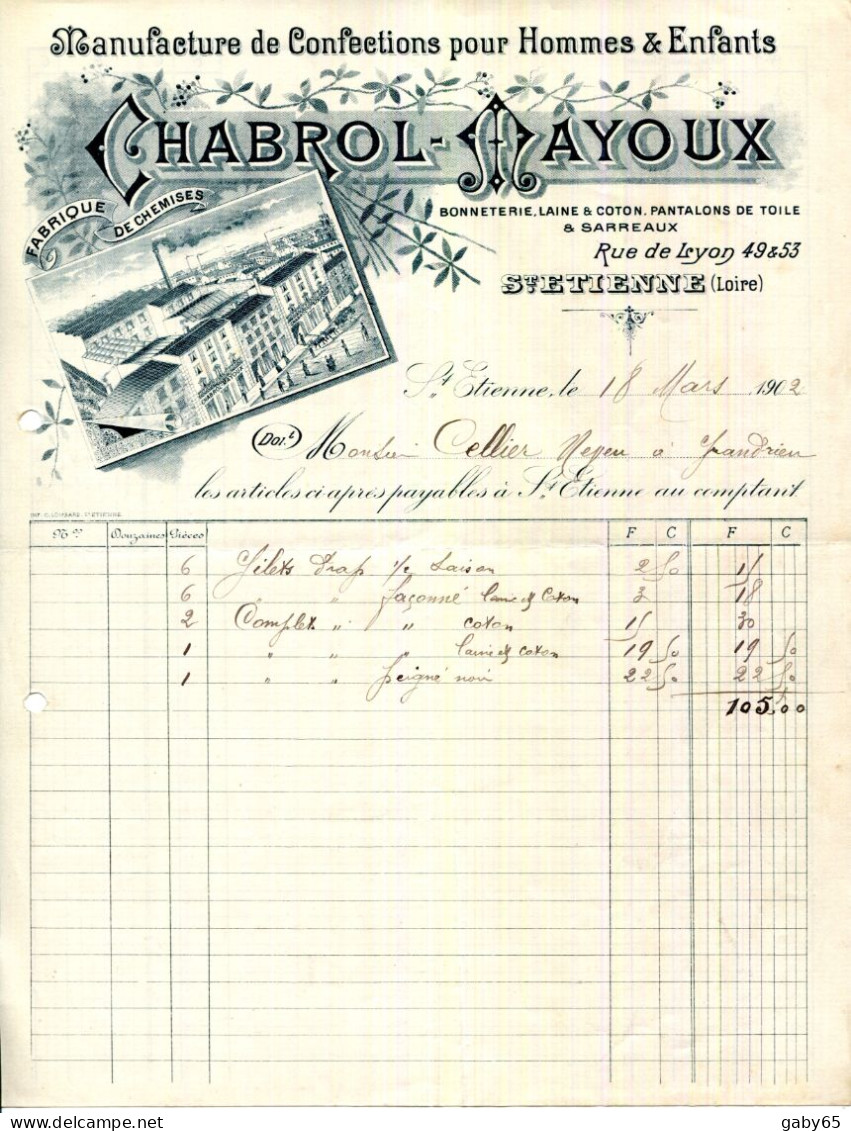 Manufacture de Confections pour Hommes & Enfants
CHABROL-MAYOUX
FABRIQUE DE CHEMISES
BONNETERIE, LAINE & COTON, PANTALONS DE TOILE
& SARREAUX
Rue de Lyon 49 & 53
ST ETIENNE (Loire)
St Etienne, le 18 Mars 1902
Doit Monsieur Cellier Neveu à Grandrieu
les articles ci-après payables à St Etienne au comptant
IMP. ST ETIENNE.
Nos Douzaines Pièces F C F C
6 Gilets Drap 1/2 Saison 2 50 15
6 " " façonné laine & Coton 3 18
2 Complets " " coton 15 30
1 " " laine & coton 19 50 19 50
1 " " peigné noir 22 50 22 50
105,00
gaby65